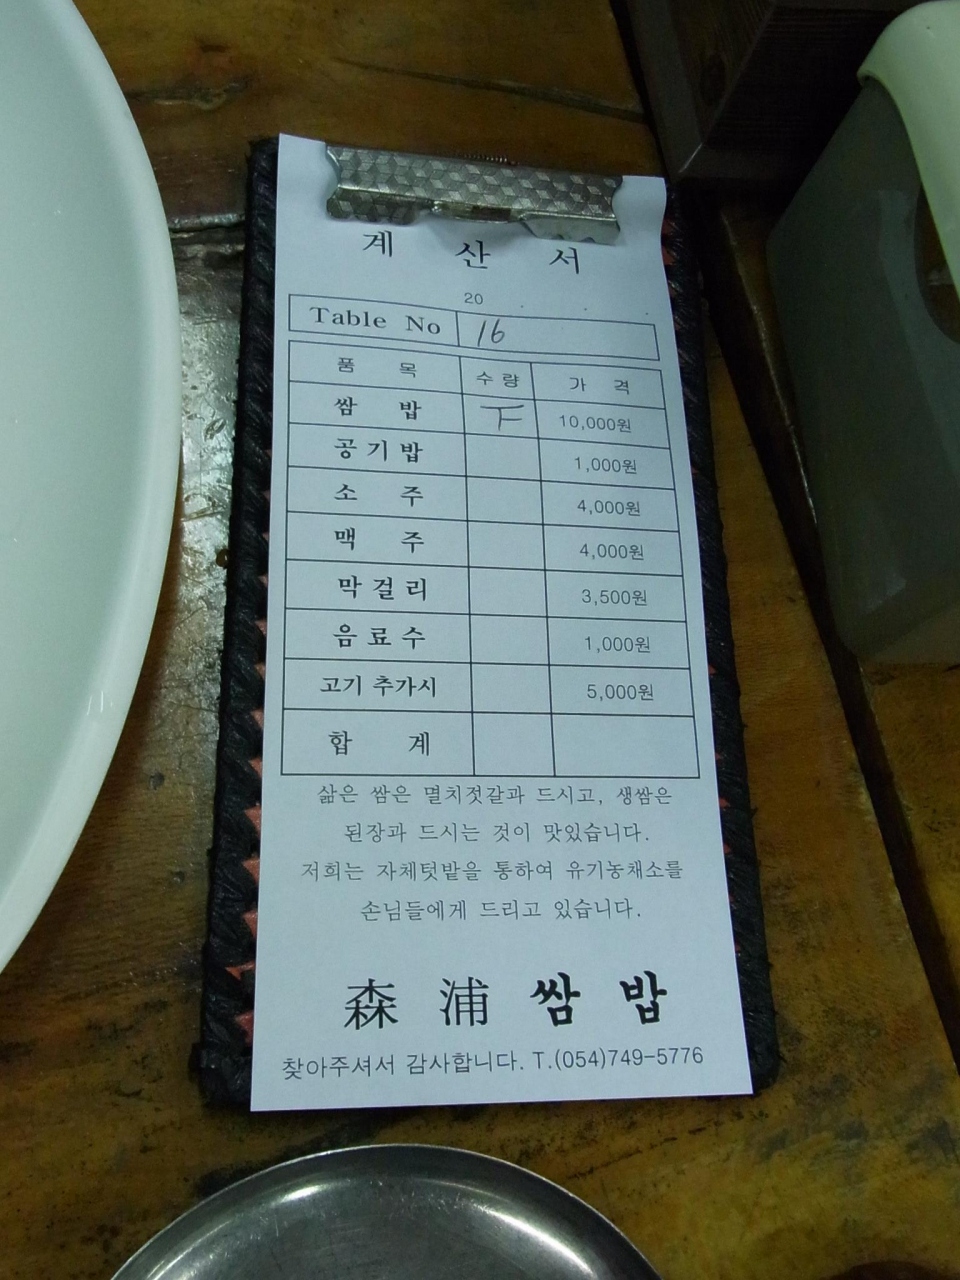 계 산 서
20 . . .
Table No 16
품 목 수 량 가 격
쌈 밥 10,000원
공 기 밥 1,000원
소 주 4,000원
맥 주 4,000원
막 걸 리 3,500원
음 료 수 1,000원
고기 추가시 5,000원
합 계
삶은 쌈은 멸치젓갈과 드시고, 생쌈은
된장과 드시는 것이 맛있습니다.
저희는 자체텃밭을 통하여 유기농채소를
손님들에게 드리고 있습니다.
森 浦 쌈 밥
찾아주셔서 감사합니다. T.(054)749-5776